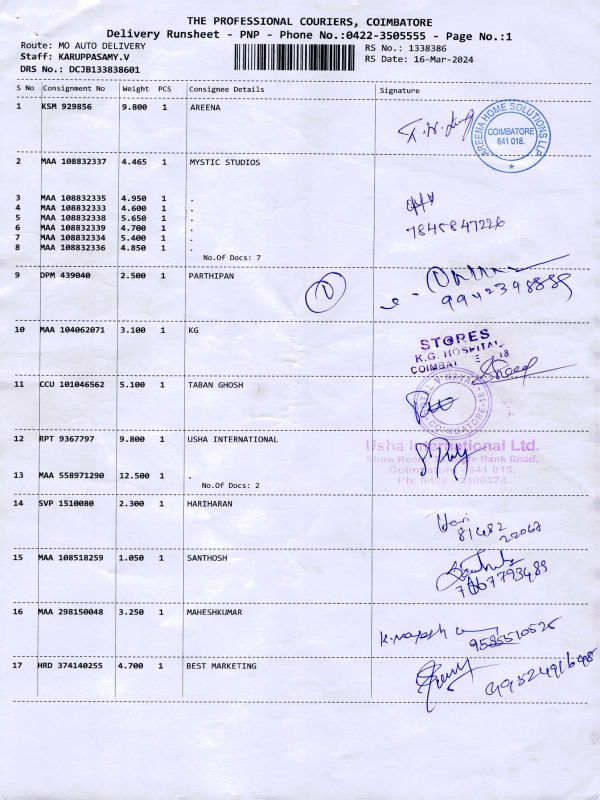 THE PROFESSIONAL COURIERS, COIMBATORE
Delivery Runsheet - PNP - Phone No.:0422-3505555 - Page No.:1
Route: MO AUTO DELIVERY RS No.: 1338386
Staff: KARUPPASAMY.V RS Date: 16-Mar-2024
DRS No.: DCJB133838601
S No Consignment No Weight PCS Consignee Details Signature
1 KSM 929856 9.800 1 AREENA
AREENA HOME SOLUTIONS LLP
COIMBATORE
641 018.
2 MAA 108832337 4.465 1 MYSTIC STUDIOS
3 MAA 108832335 4.950 1 .
4 MAA 108832333 4.600 1 .
5 MAA 108832338 5.650 1 .
6 MAA 108832339 4.700 1 .
7 MAA 108832334 5.400 1 .
8 MAA 108832336 4.850 1 .
7845847226
No.Of Docs: 7
9 DPM 439040 2.500 1 PARTHIPAN
10 MAA 104062071 3.100 1 KG
STORES
K.G. HOSPITAL
11 CCU 101046562 5.100 1 TABAN GHOSH
COIMBATORE-18
12 RPT 9367797 9.800 1 USHA INTERNATIONAL
Usha International Ltd.
Bank Road,
13 MAA 558971290 12.500 1 .
641 018.
No.Of Docs: 2
Ph: 0422 2300374
14 SVP 1510080 2.300 1 HARIHARAN
Hari
81482
22067
15 MAA 108518259 1.050 1 SANTHOSH
7667793489
16 MAA 298150048 3.250 1 MAHESHKUMAR
9585510525
17 HRD 374140255 4.700 1 BEST MARKETING